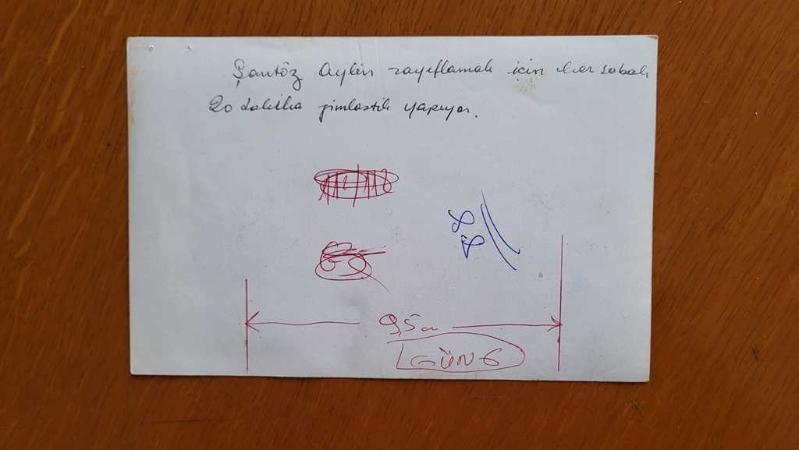 Şantöz Aylin zayıflamak için her sabah
20 dakika jimlastik yapıyor.
9,5 cm
GÜN 6